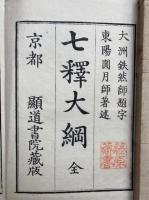 大洲鉄然師題字
東陽圓月師著述
七釋大綱 全
京都 顯道書院藏版